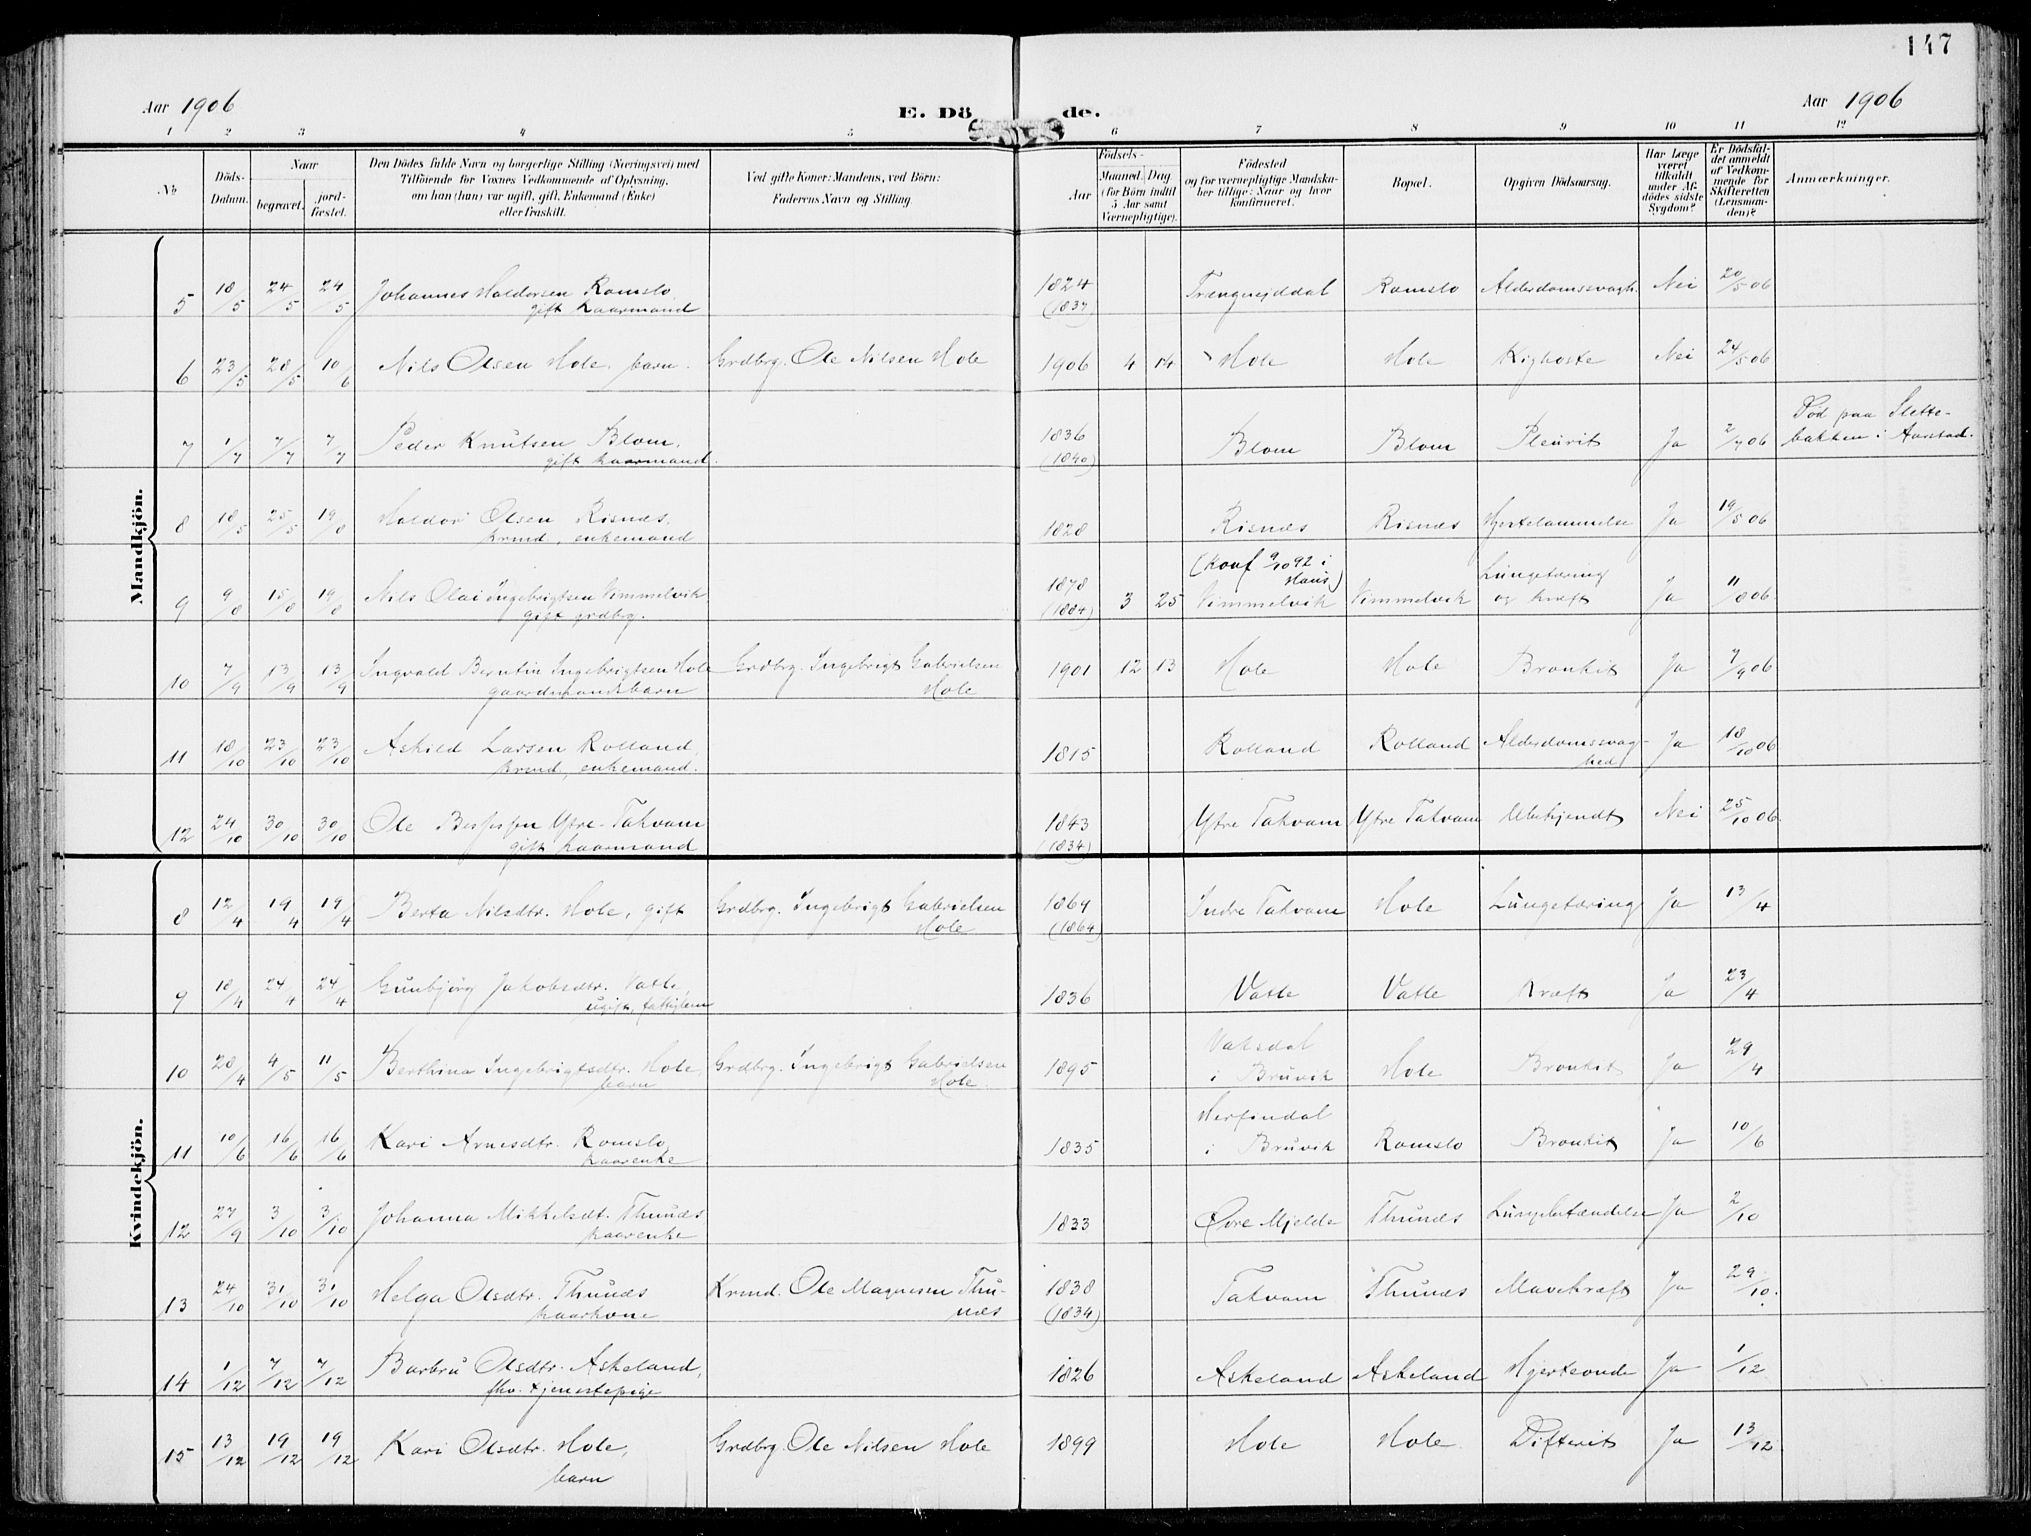 147
Aar 1906
E. Dö de.
Aar 1906
1 2 3 4 5 6 7 8 9 10 11 12
No
Döds-
Datum.
Naar
begravet.
jord-
fæstet.
Den Dödes fulde Navn og borgerlige Stilling (Næringsvei) med
Tilföiende for Voxnes Vedkommende af Oplysning,
om han (hun) var ugift, gift, Enkemand (Enke)
eller fraskilt.
Ved gifte Koner: Mandens, ved Börn:
Faderens Navn og Stilling.
Födsels-
Aar
Maaned. Dag
(for Börn indtil
5 Aar samt
Værnepligtige).
Födested
og for værnepligtige Mandska-
ber tillige: Naar og hvor
konfirmeret.
Bopæl.
Opgiven Dödsaarsag.
Har Læge
været
tilkaldt
under Af-
dödes sidste
Sygdom?
Er Dödsfal-
det anmeldt
af Vedkom-
mende for
Skifteretten
(Lensman-
den)?
Anmærkninger.
Mandkjön.
5 18/5 24/5 24/5 Johannes Haldorsen Romslo 1824 Trengereiddal Romslo Alderdomssvagh. Nei 20/5 06
gift kaarmand (1837)
6 23/5 28/5 10/6 Nils Olsen Hole. barn. Grdbrg. Ole Nilsen Hole 1906 4 14 Hole Hole Kighoste Nei 24/5 06
7 1/7 7/7 7/7 Peder Knutsen Blom, 1836 Blom Blom Pleurit Ja 2/7 06 Död paa Slette-
gift kaarmand. (1840) bakken i Aarstad.
8 18/5 25/5 19/8 Haldor Olsen Risnæs, 1828 Risnæs Risnæs Hjertelammelse Ja 19/5 06
krmd, enkemand
(Konf 9/10 92 i
Haus)
9 9/8 15/8 19/8 Nils Olai Ingebrigtsen Vimmelvik 1878 3 25 Vimmelvik Vimmelvik Lungetæring Ja 11/8 06
gift grdbrg. (1884) og kræft
10 7/9 13/9 13/9 Ingvald Berntin Ingebrigtsen Hole Grdbrg. Ingebrigt Gabrielsen 1901 12 13 Hole Hole Bronkit Ja 7/9 06
gaardmandsbarn Hole
11 18/10 23/10 23/10 Askild Larsen Rolland, 1815 Rolland Rolland Alderdomssvag- Ja 18/10 06
krmd, enkemand. hed
12 24/10 30/10 30/10 Ole Ytre-Takvam 1843 Ytre Takvam Ytre Takvam Ubekjendt Nei 25/10 06
gift kaarmand (1834)
Kvindekjön.
8 12/4 19/4 19/4 Berta Nilsdtr. Hole, gift Grdbrg. Ingebrigt Gabrielsen 1869 Indre Takvam Hole Lungetæring Ja 13/4
Hole (1864)
9 18/4 24/4 24/4 Gunbjörg Jakobsdtr. Vatle, 1836 Vatle Vatle Kræft Ja 23/4
ugift, fattiglem
10 28/4 4/5 11/5 Berthina Ingebrigtsdtr. Hole, Grdbrg. Ingebrigt Gabrielsen 1895 Vaksdal Hole Bronkit Ja 29/4
barn Hole. i Bruvik
11 10/6 16/6 16/6 Kari Arnesdtr. Romslo, 1835 Herfindal Romslo Bronkit Ja 10/6
kaarenke i Bruvik
12 27/9 3/10 3/10 Johanna Mikkelsdt. Thunæs 1833 Övre Mjelde Thunæs Lungebetændelse Ja 2/10
kaarenke
13 24/10 31/10 31/10 Helga Olsdtr. Thunæs Krmd. Ole Magnesen Thu- 1838 Takvam Thunæs Mavekræft Ja 29/10.
kaarkone næs (1834)
14 1/12 7/12 7/12 Barbru Olsdtr. Askeland, 1826 Askeland Askeland Hjerteonde Ja 1/12
fhv. tjenestepige
15 13/12 19/12 19/12 Kari Olsdtr. Hole, Grdbrg. Ole Nilsen Hole 1899 Hole Hole Difterit Ja 13/12
barn